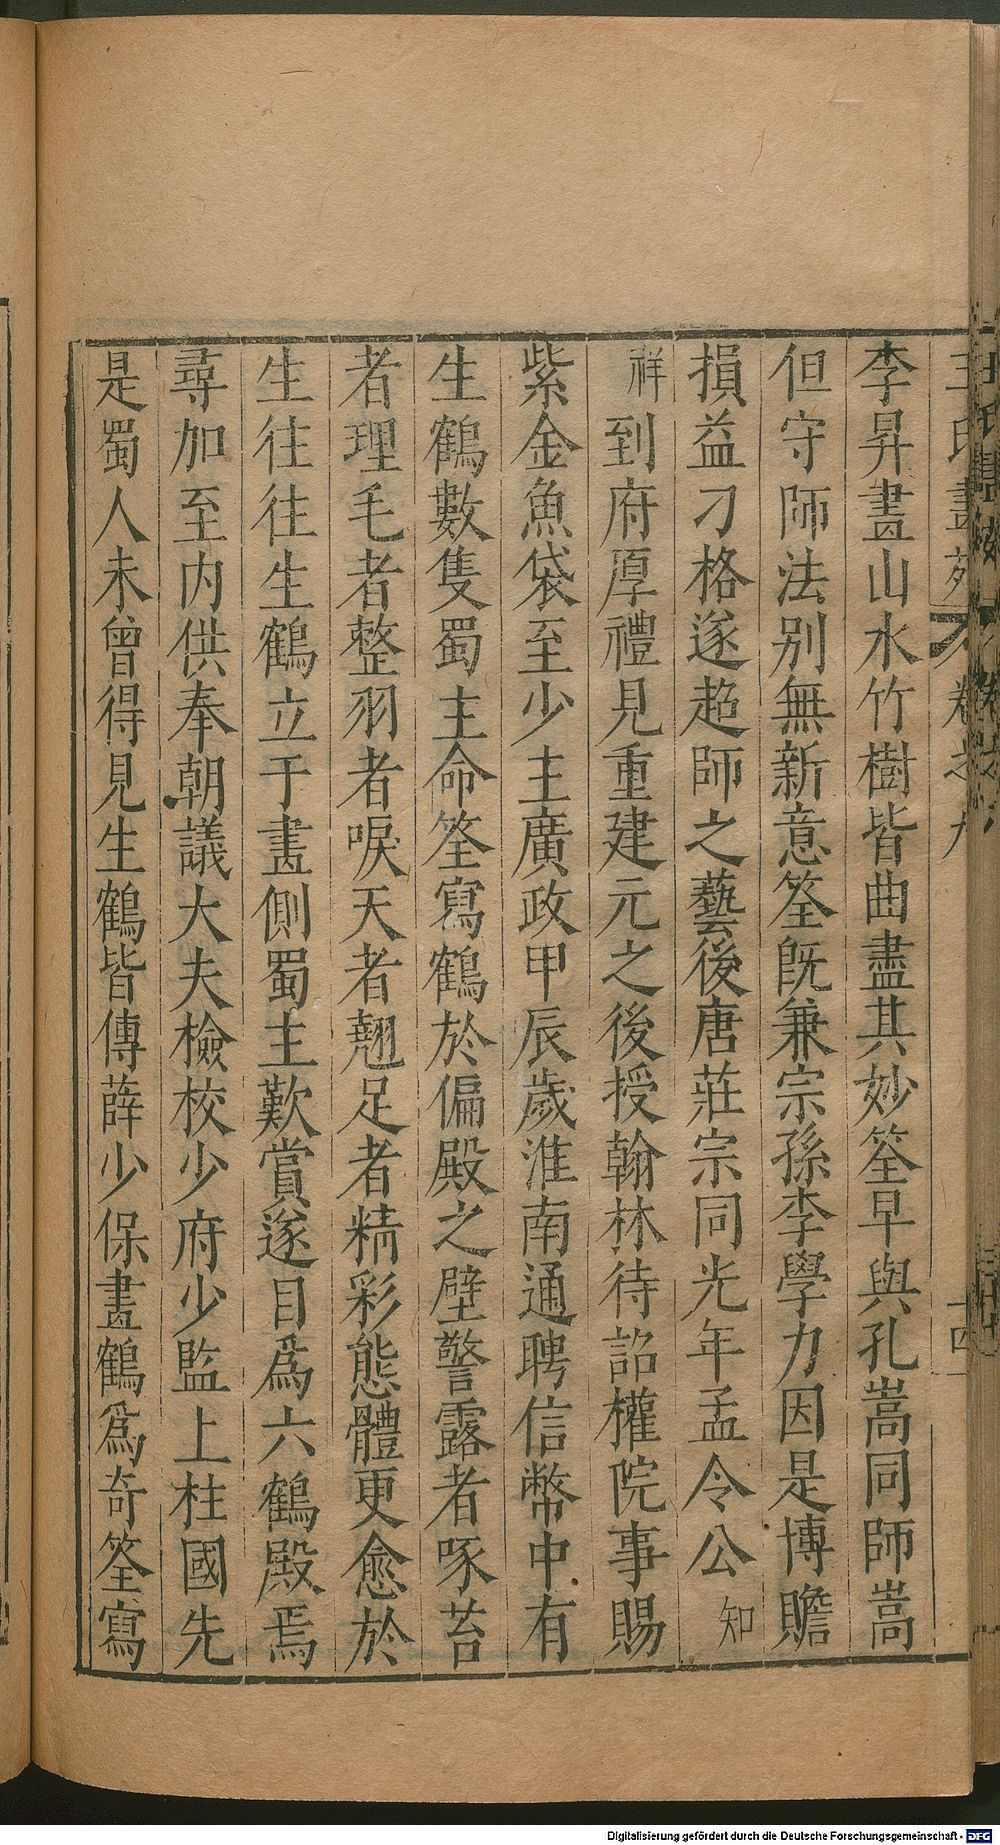 王氏畫苑 卷之九 十四
李昇畫山水竹樹皆曲盡其妙筌早與孔嵩同師嵩
但守師法别無新意筌既兼宗孫李學力因是博贍
損益刁格遂超師之藝後唐莊宗同光年孟令公知
祥到府厚禮見重建元之後授翰林待詔權院事賜
紫金魚袋至少主廣政甲辰歲淮南通聘信幣中有
生鶴數隻蜀主命筌寫鶴於偏殿之壁警露者啄苔
者理毛者整羽者唳天者翹足者精彩態體更愈於
生往往生鶴立于畫側蜀主歎賞遂目爲六鶴殿焉
尋加至内供奉朝議大夫檢校少府少監上柱國先
是蜀人未曾得見生鶴皆傳薛少保畫鶴爲奇筌寫
Digitalisierung gefördert durch die Deutsche Forschungsgemeinschaft - DFG